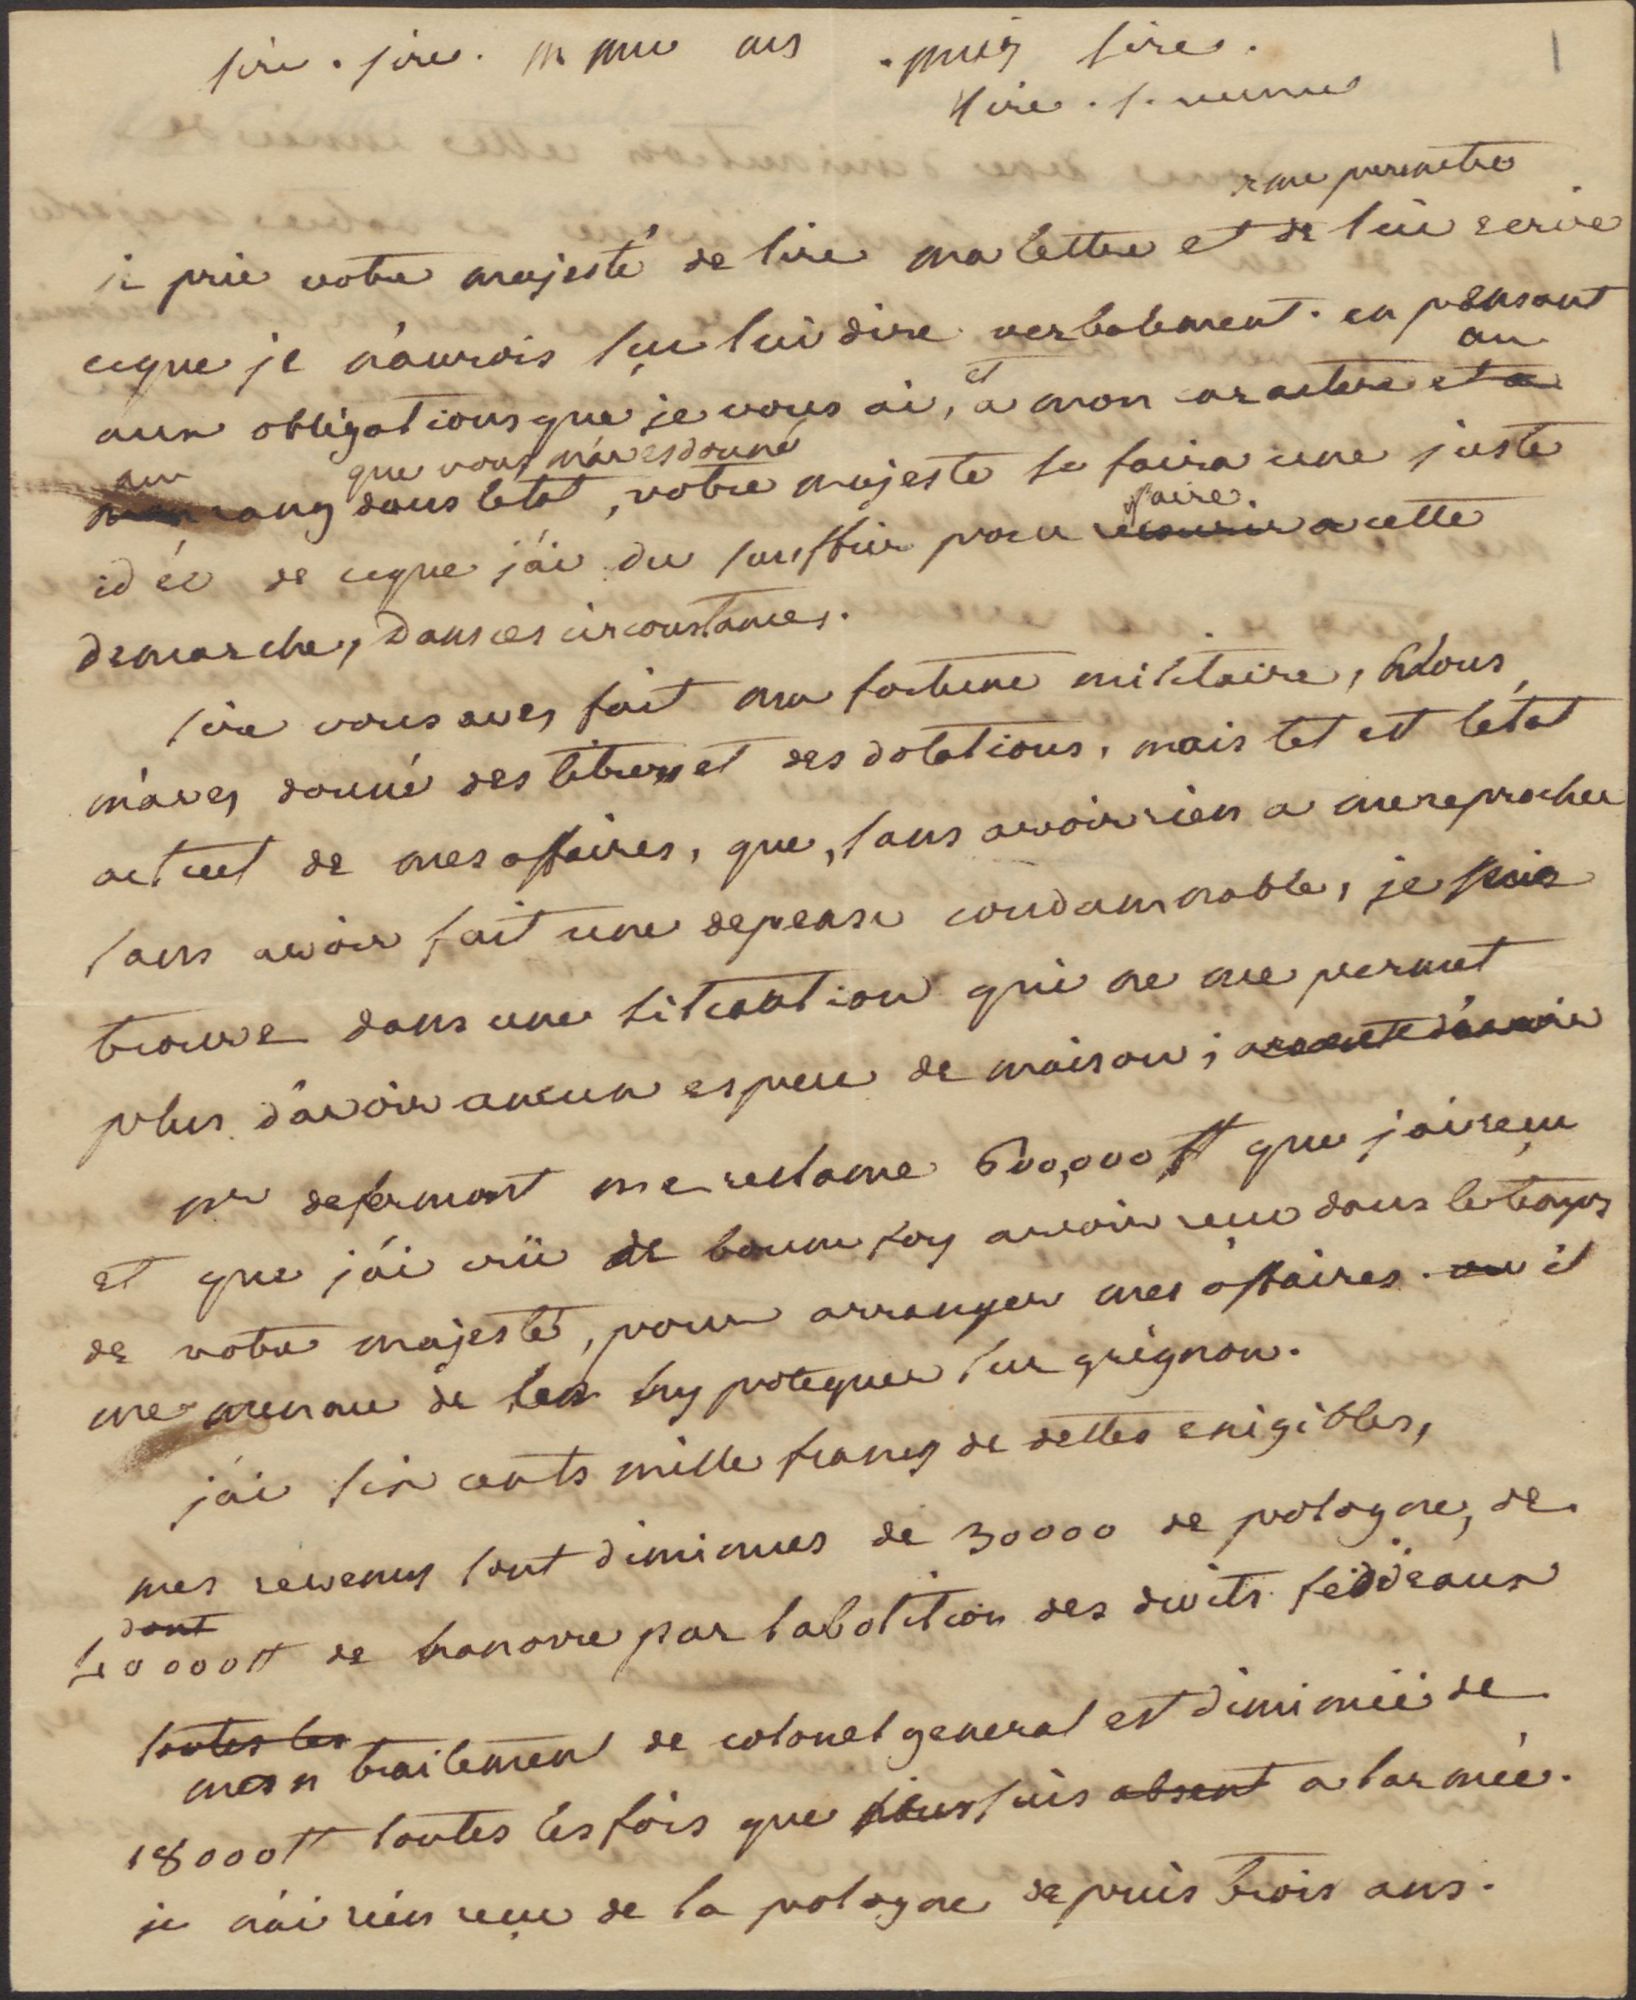 sire . sire . m mu us . puis sire .
sire . s.
1
& me permetre
je prie votre majesté de lire ma lettre et de lui ecrire
ceque je n'aurois sçu lui dire verbalement . en pensant
aux obligations que je vous ai, et a mon caractere et a au
au rang que vous m'aves donné dans letat, votre majesté se faira une juste
idée de ceque j'ai du souffrir pour recourir a faire cette
demarche, dans ces circonstances.
sire vous aves fait ma fortune militaire, vous
m'aves donné des titres et des dotations, mais tel est letat
actuel de mes affaires, que, sans avoir rien a me reprocher
sans avoir fait une depense condamnable, je puis
trouve dans une situation qui ne me permet
plus d'avoir aucun espece de maison ;
mr defermont me reclame 600,000 ₶ que j'ai reçu
et que j'ai crü de bonne foy avoir reçu dans le temps
de votre majesté, pour arranger mes affaires . ou il
me menace de les hypotequer sur grignon.
j'ai six cents mille francs de dettes exigibles,
mes revenus sont diminues de 30000 de pologne, de
dont
40000₶ de hanovre par labolition des droits feodeaux
toutes les
mon traitement de colonel general est diminüé de
18000₶ toutes les fois que je suis absent a larmée.
je n'ai rien reçu de la pologne depuis trois ans.